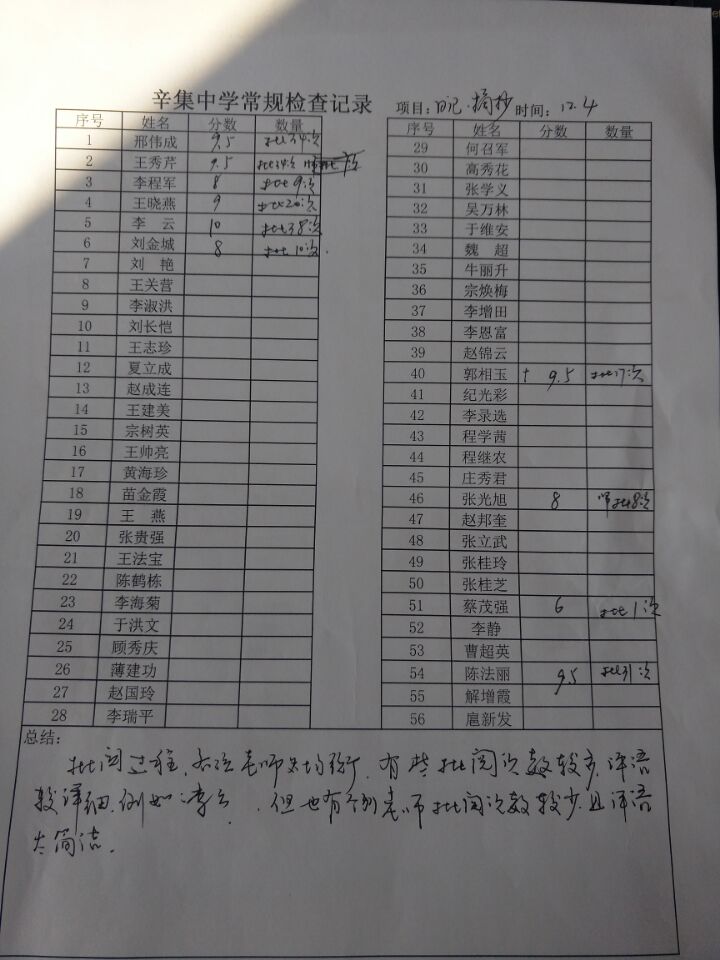 辛集中学常规检查记录 项目：日记·摘抄 时间：12.4
序号 姓名 分数 数量
1 邢伟成 9.5 批34次
2 王秀芹 9.5 批34次
3 李程军 8 批9次
4 王晓燕 9 批20次
5 李 云 10 批38次
6 刘金城 8 批10次
7 刘 艳
8 王关营
9 李淑洪
10 刘长恺
11 王志珍
12 夏立成
13 赵成连
14 王建美
15 宗树英
16 王帅亮
17 黄海珍
18 苗金霞
19 王 燕
20 张贵强
21 王法宝
22 陈鹤栋
23 李海菊
24 于洪文
25 顾秀庆
26 薄建功
27 赵国玲
28 李瑞平
序号 姓名 分数 数量
29 何召军
30 高秀花
31 张学义
32 吴万林
33 于维安
34 魏 超
35 牛丽升
36 宗焕梅
37 李增田
38 李恩富
39 赵锦云
40 郭相玉 9.5 批17次
41 纪光彩
42 李录选
43 程学茜
44 程继农
45 庄秀君
46 张光旭 8 师批8次
47 赵邦奎
48 张立武
49 张桂玲
50 张桂芝
51 蔡茂强 6 批1次
52 李静
53 曹超英
54 陈法丽 9.5 批31次
55 解增霞
56 扈新发
总结：
批阅过程，各位老师欠均衡，有些批阅次数较多，评语
较详细，例如：李云，但也有个别老师批阅次数较少，且评语
太简洁。